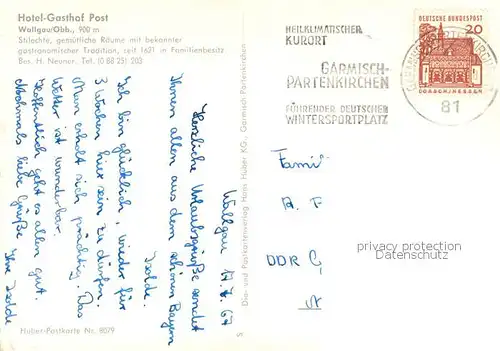 Hotel-Gasthof Post
Wallgau/Obb., 900 m
Stilechte, gemütliche Räume mit bekannter
gastronomischer Tradition, seit 1621 in Familienbesitz
Bes. H. Neuner, Tel. (0 88 25) 203
Wallgau 17.7.67
Herzliche Urlaubsgrüße sendet
Ihnen allen aus dem schönen Bayern
Isolde.
Ich bin glücklich, wieder für
3 Wochen hier sein zu dürfen.
Man erholt sich prächtig. Das
Wetter ist wunderbar.
Hoffentlich geht es allen gut.
Nochmals liebe Grüße
Ihre Isolde
Huber-Postkarte Nr. 8079
Dia- und Postkartenverlag Hans Huber KG., Garmisch-Partenkirchen
S
HEILKLIMATISCHER
KURORT
GARMISCH-
PARTENKIRCHEN
FÜHRENDER DEUTSCHER
WINTERSPORTPLATZ
81
DEUTSCHE BUNDESPOST
20
LORSCH/HESSEN
Famil
A. F
DDR G
privacy protection
AnsichtskartenVersand